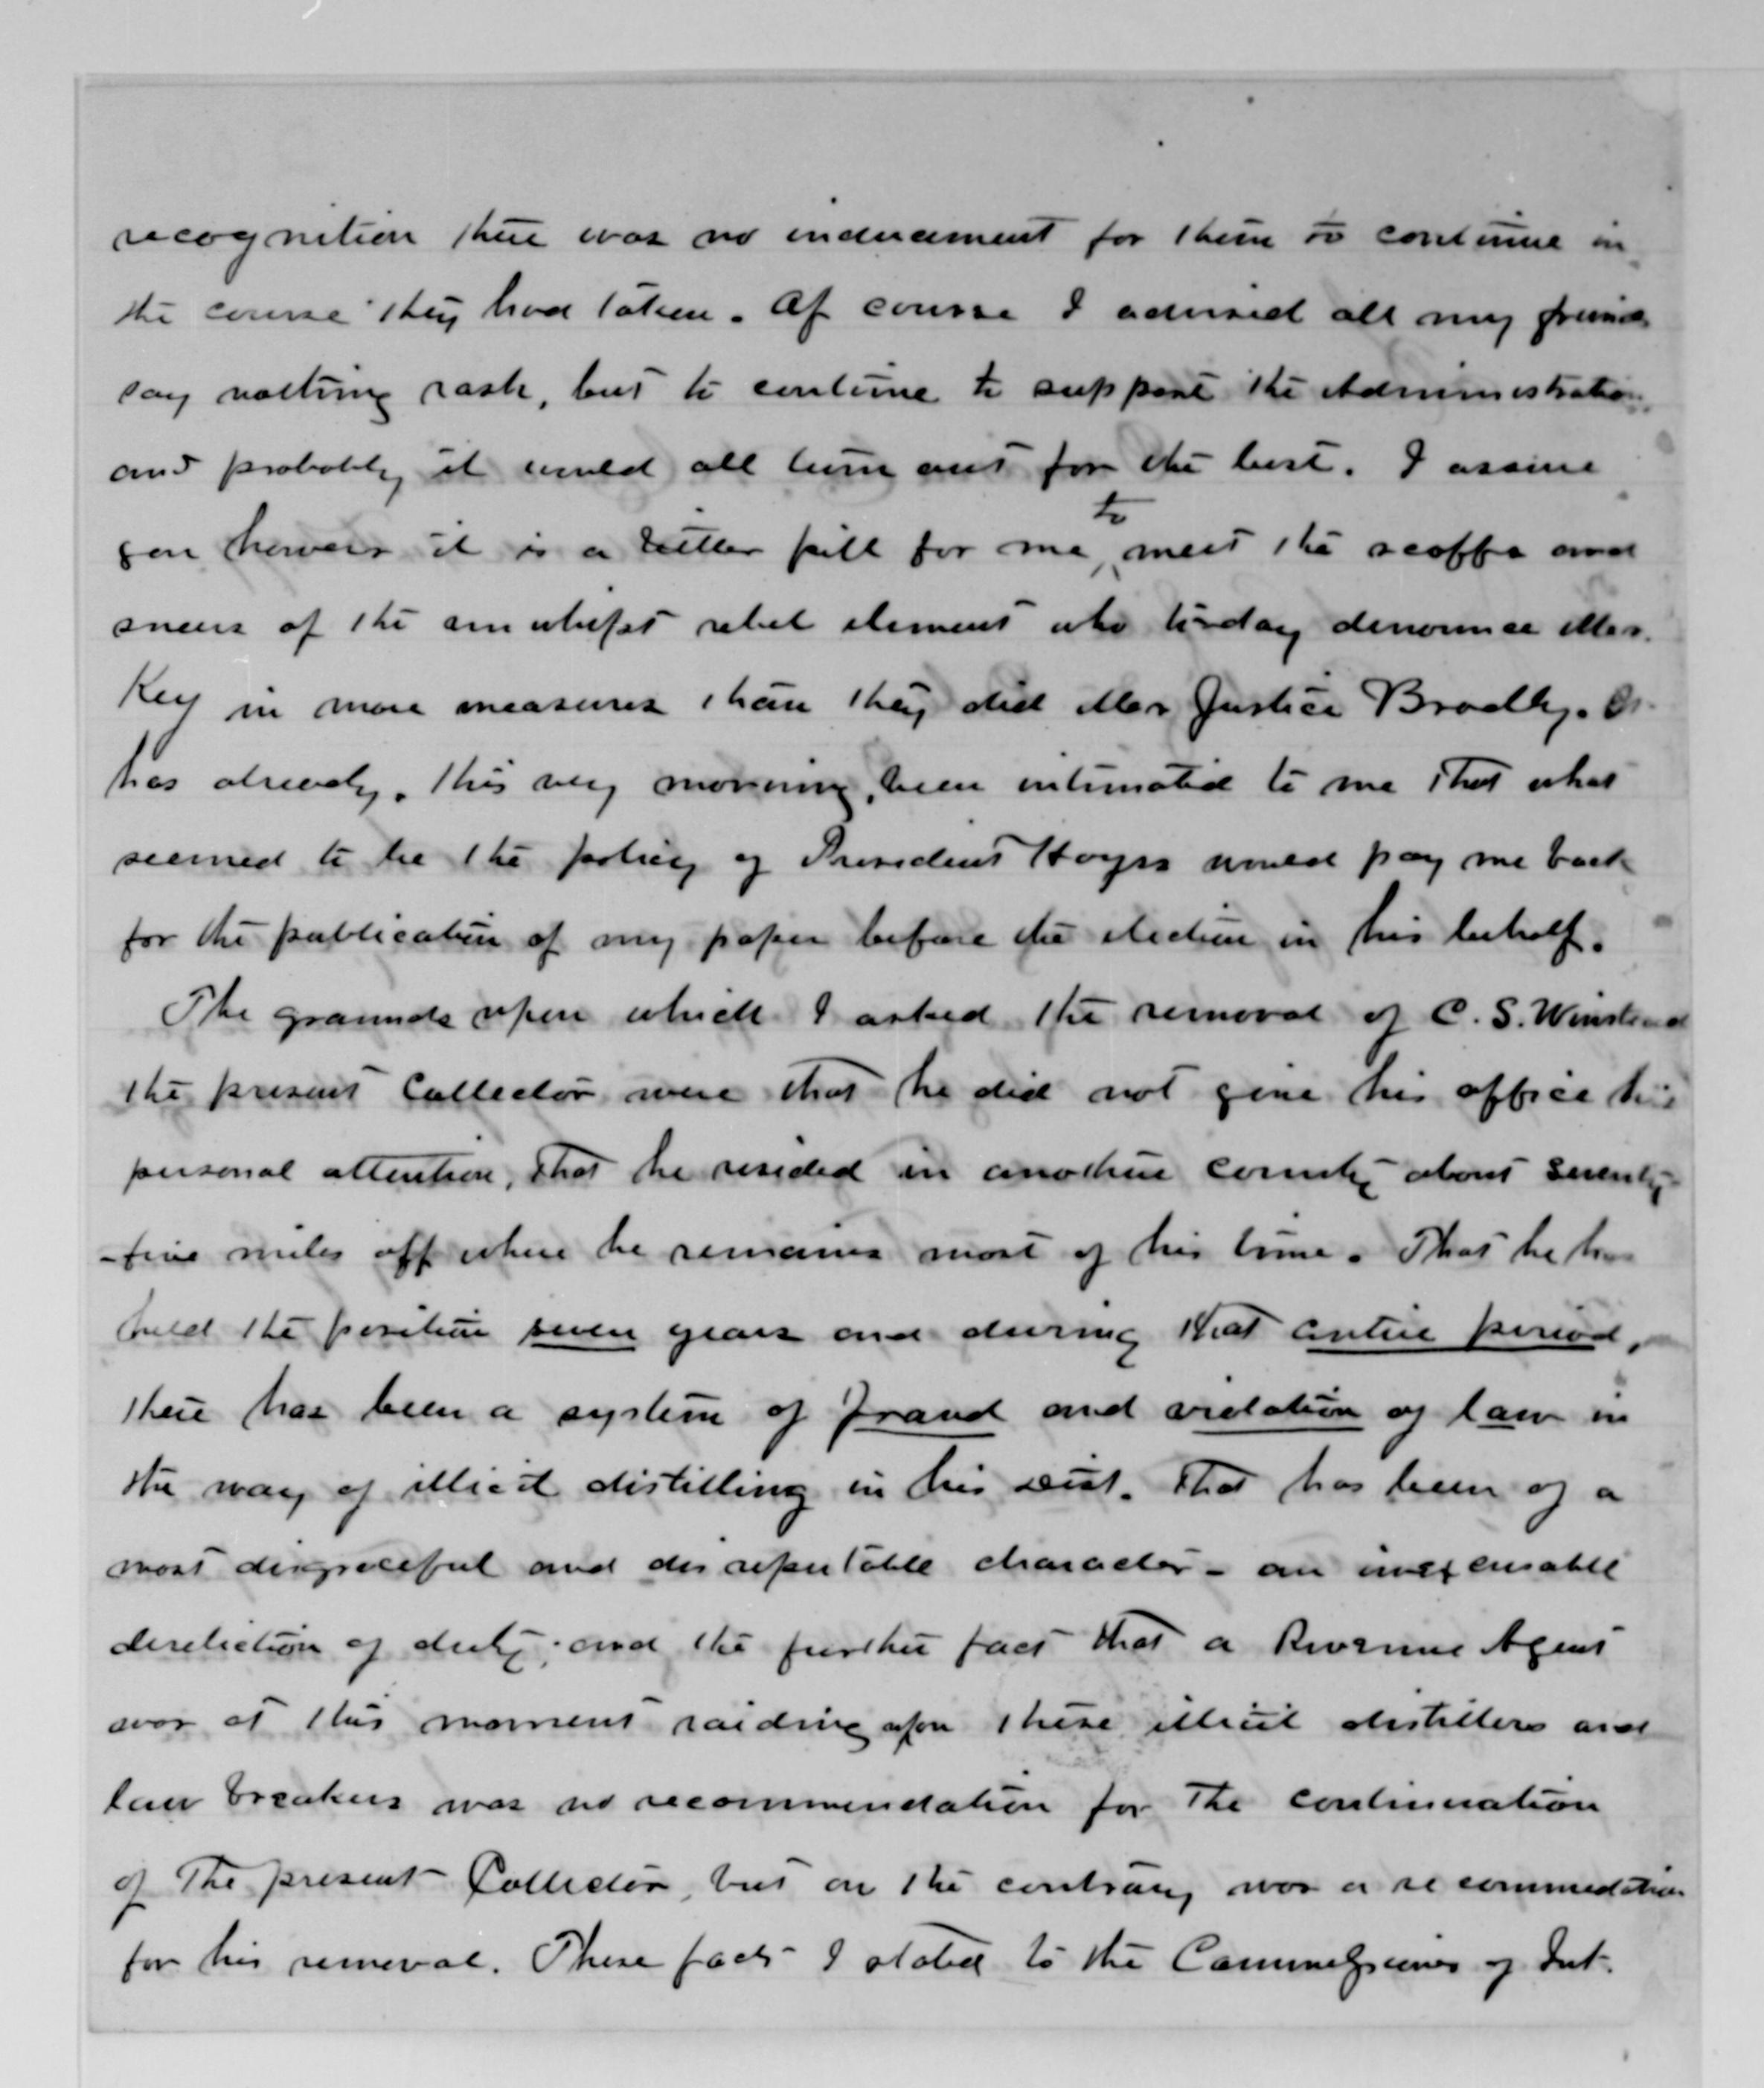 recognition there was no inducement for them to continue in
the course they had taken. Of course I advised all my friends
say nothing rash, but to continue to support the Administration
and probably it would all turn out for the best. I assure
you however it is a bitter pill for me to meet the scoffs and
sneers of the unwhipt rebel element who to-day denounce Mr.
Key in more measures than they did Mr Justice Bradley. It
has already, this very morning, been intimated to me that what
seemed to be the policy of President Hayes would pay me back
for the publication of my paper before the election in his behalf.
The grounds upon which I asked the removal of C. S. Winstead
the present Collector were that he did not give his office his
personal attention, that he resided in another county about seventy-
-five miles off where he remains most of his time. That he has
held the position seven years and during that entire period,
there has been a system of fraud and violation of law in
the way of illicit distilling in his Dist. that has been of a
most disgraceful and disreputable character - an inexcusable
dereliction of duty; and the further fact that a Revenue Agent
was at this moment raiding upon these illicit distillers and
law breakers was no recommendation for the continuation
of the present Collector, but on the contrary was a recommedation
for his removal. These facts I stated to the Commissioner of Int.